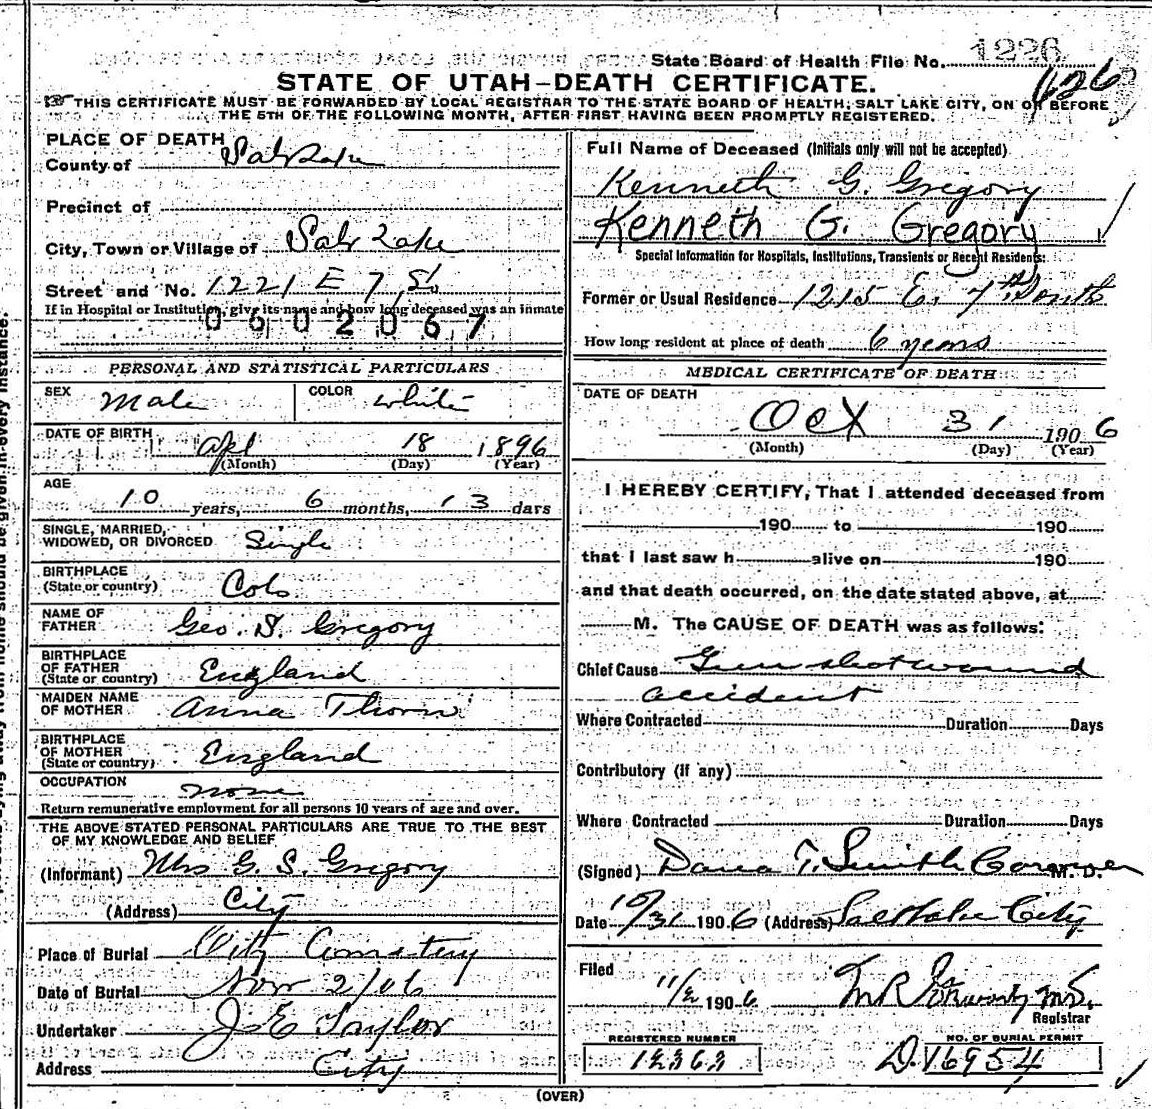 State Board of Health File No. 1226
126
STATE OF UTAH—DEATH CERTIFICATE.
THIS CERTIFICATE MUST BE FORWARDED BY LOCAL REGISTRAR TO THE STATE BOARD OF HEALTH, SALT LAKE CITY, ON OR BEFORE
THE 5TH OF THE FOLLOWING MONTH, AFTER FIRST HAVING BEEN PROMPTLY REGISTERED.
PLACE OF DEATH
County of Salt Lake
Precinct of
City, Town or Village of Salt Lake
Street and No. 1221 E 7 So
If in Hospital or Institution, give its name and how long deceased was an inmate
0602067
PERSONAL AND STATISTICAL PARTICULARS
SEX Male COLOR White
DATE OF BIRTH Apl 18 1896
(Month) (Day) (Year)
AGE
10 years, 6 months, 13 days
SINGLE, MARRIED,
WIDOWED, OR DIVORCED Single
BIRTHPLACE
(State or country) Colo
NAME OF
FATHER Geo. S. Gregory
BIRTHPLACE
OF FATHER
(State or country) England
MAIDEN NAME
OF MOTHER Anna Thorn
BIRTHPLACE
OF MOTHER
(State or country) England
OCCUPATION none
Return remunerative employment for all persons 10 years of age and over.
THE ABOVE STATED PERSONAL PARTICULARS ARE TRUE TO THE BEST
OF MY KNOWLEDGE AND BELIEF
(Informant) Mrs G. S. Gregory
(Address) City
Place of Burial City Cemetery
Date of Burial Nov 2/06
Undertaker J E Taylor
Address City
Full Name of Deceased (Initials only will not be accepted)
Kenneth G. Gregory
Kenneth G. Gregory
Special Information for Hospitals, Institutions, Transients or Recent Residents:
Former or Usual Residence 1215 E. 7th South
How long resident at place of death 6 years
MEDICAL CERTIFICATE OF DEATH
DATE OF DEATH
Oct 31 1906
(Month) (Day) (Year)
I HEREBY CERTIFY, That I attended deceased from
190 to 190
that I last saw h alive on 190
and that death occurred, on the date stated above, at
M. The CAUSE OF DEATH was as follows:
Chief Cause Gun shot wound
accident
Where Contracted Duration Days
Contributory (if any)
Where Contracted Duration Days
(Signed) Dana T. Smith Coroner M. D.
Date 10/31 1906 (Address) Salt Lake City
Filed
11/2 1906 M.D.
Registrar
REGISTERED NUMBER
12363
NO. OF BURIAL PERMIT
D.16954
(OVER)